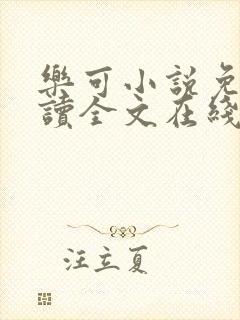 樂可小說免
讀全文在綫
汪立夏